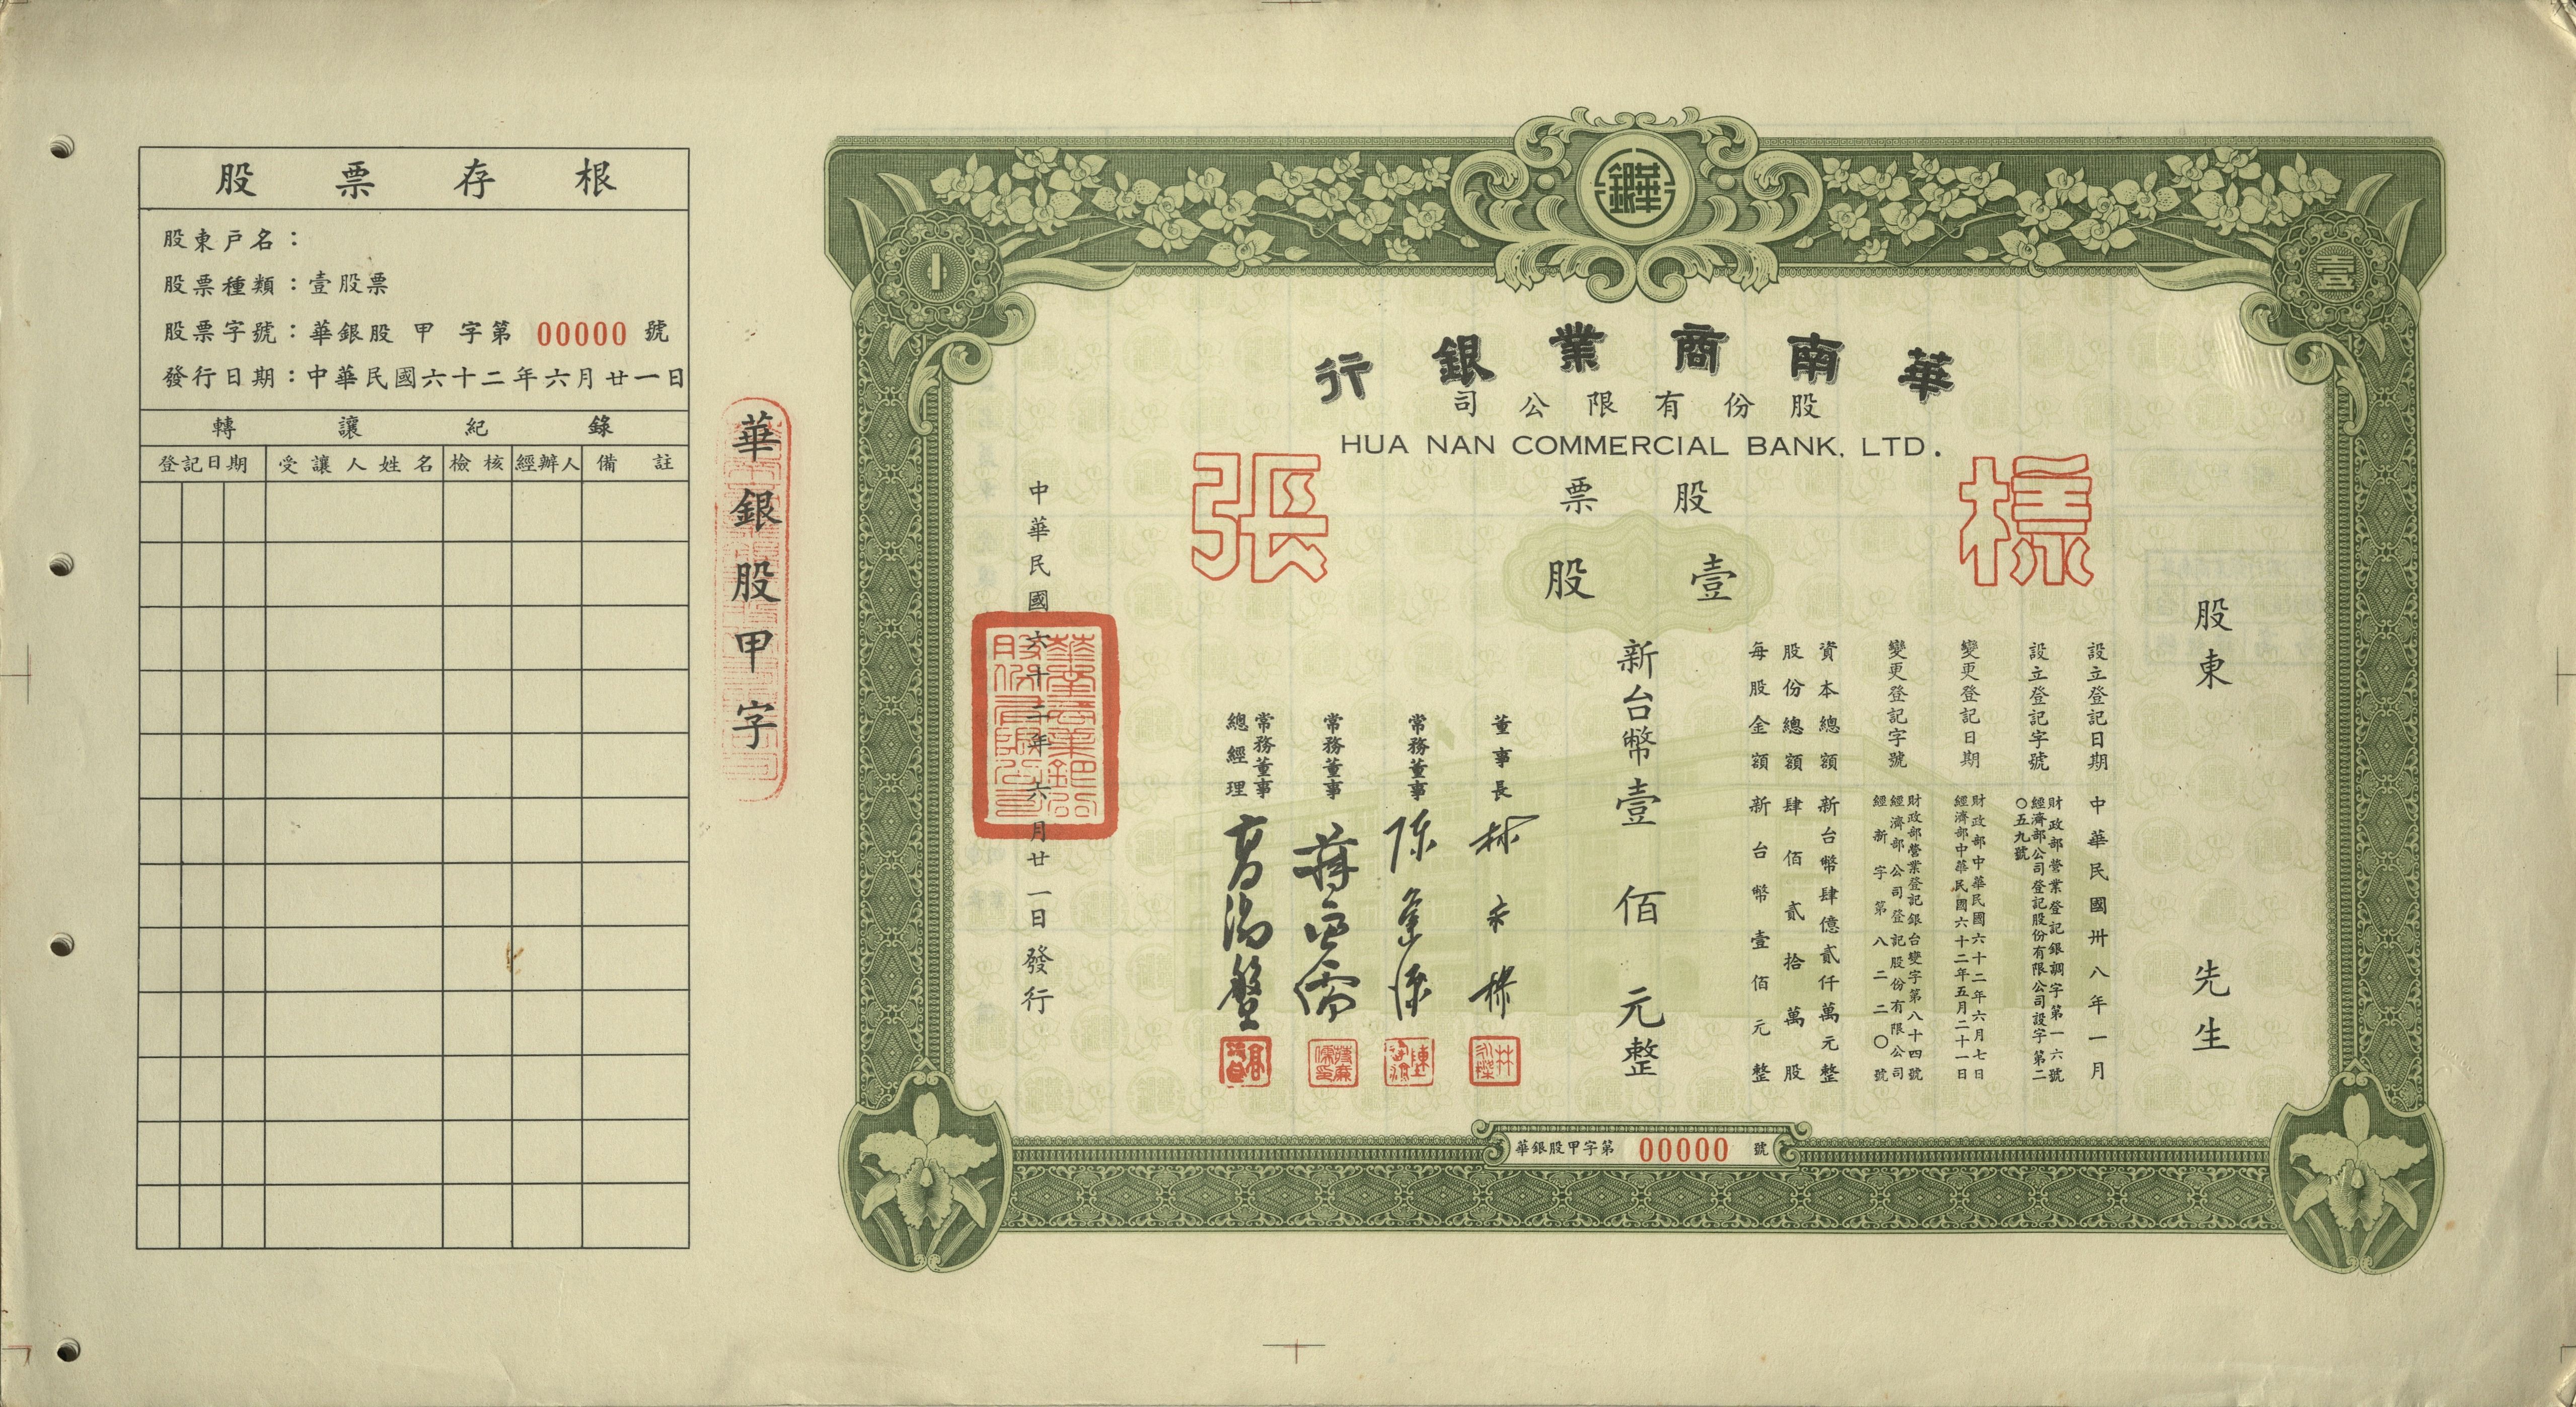 股票存根
股東戶名：
股票種類：壹股票
股票字號：華銀股 甲 字第 00000 號
發行日期：中華民國六十二年六月廿一日
轉讓紀錄
登記日期 受讓人姓名 檢核 經辦人 備註
華銀股甲字
華銀
壹
華南商業銀行
股份有限公司
HUA NAN COMMERCIAL BANK, LTD.
樣張
股票
壹股
股東 先生
設立登記日期 中華民國卅八年一月
設立登記字號 財政部營業登記銀調字第一六號
經濟部公司登記股份有限公司設字第二
〇五九號
變更登記日期 財政部中華民國六十二年六月七日
經濟部中華民國六十二年五月二十一日
變更登記字號 財政部營業登記銀台變字第八十四號
經濟部公司登記股份有限公司
經新字第八二二〇號
資本總額 新台幣肆億貳仟萬元整
股份總額 肆佰貳拾萬股
每股金額 新台幣壹佰元整
新台幣壹佰元整
董事長
常務董事
常務董事
常務董事
總經理
中華民國六十二年六月廿一日發行
華南商業銀行股份有限公司
華銀股甲字第 00000 號